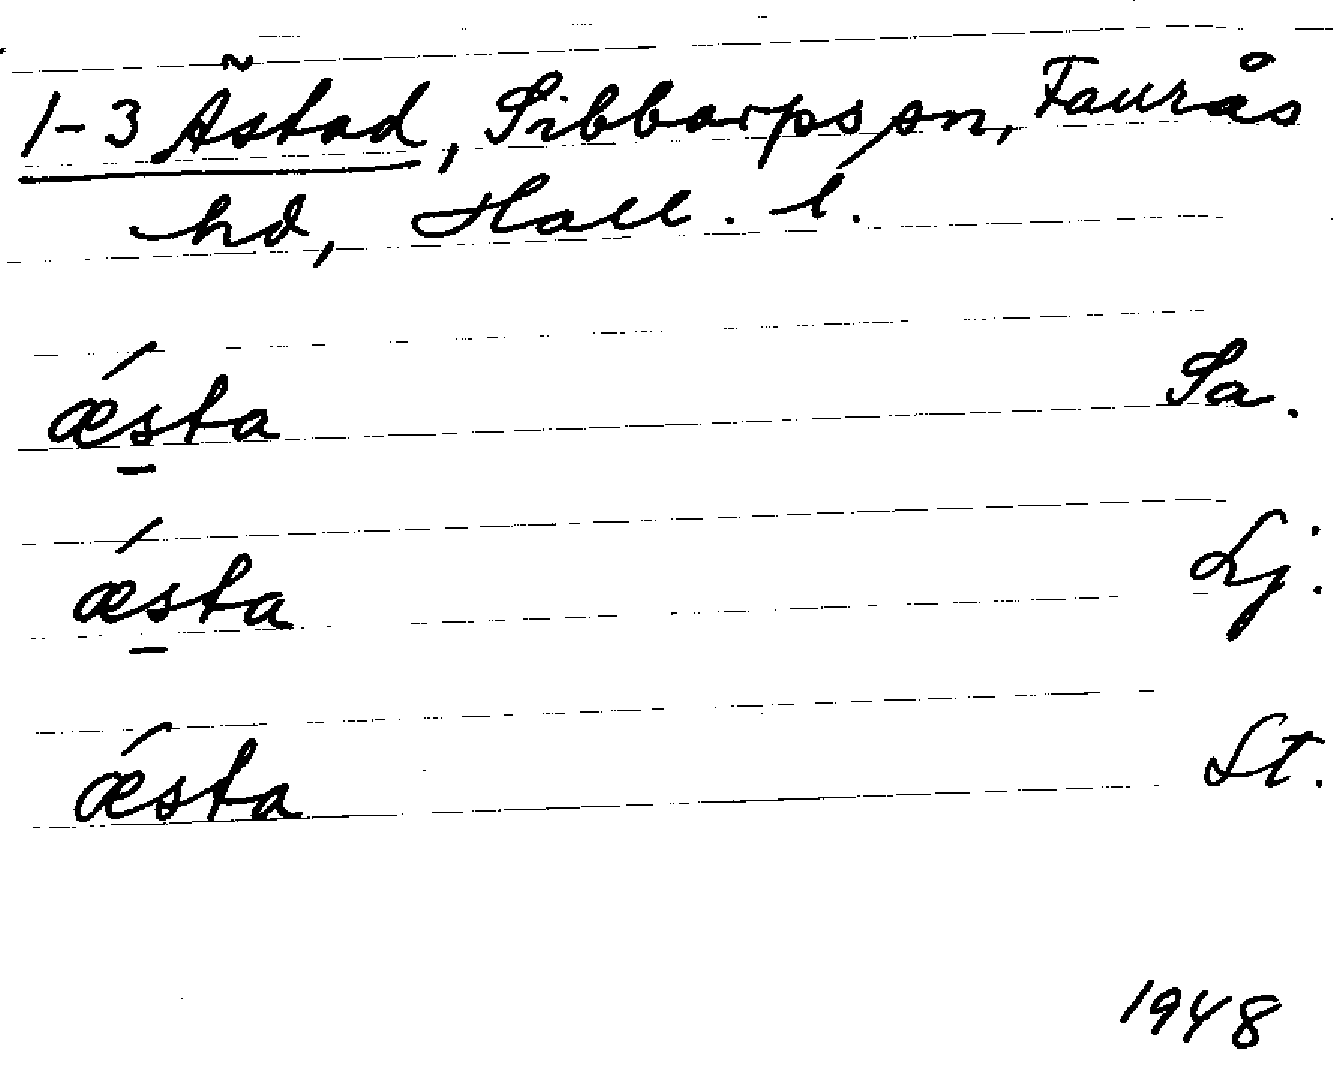 1-3 Ästad, Sibbarps sn, Faurås
hd, Hall. l.
ǽsta Sa.
ǽsta Lj.
ǽsta St.
1948